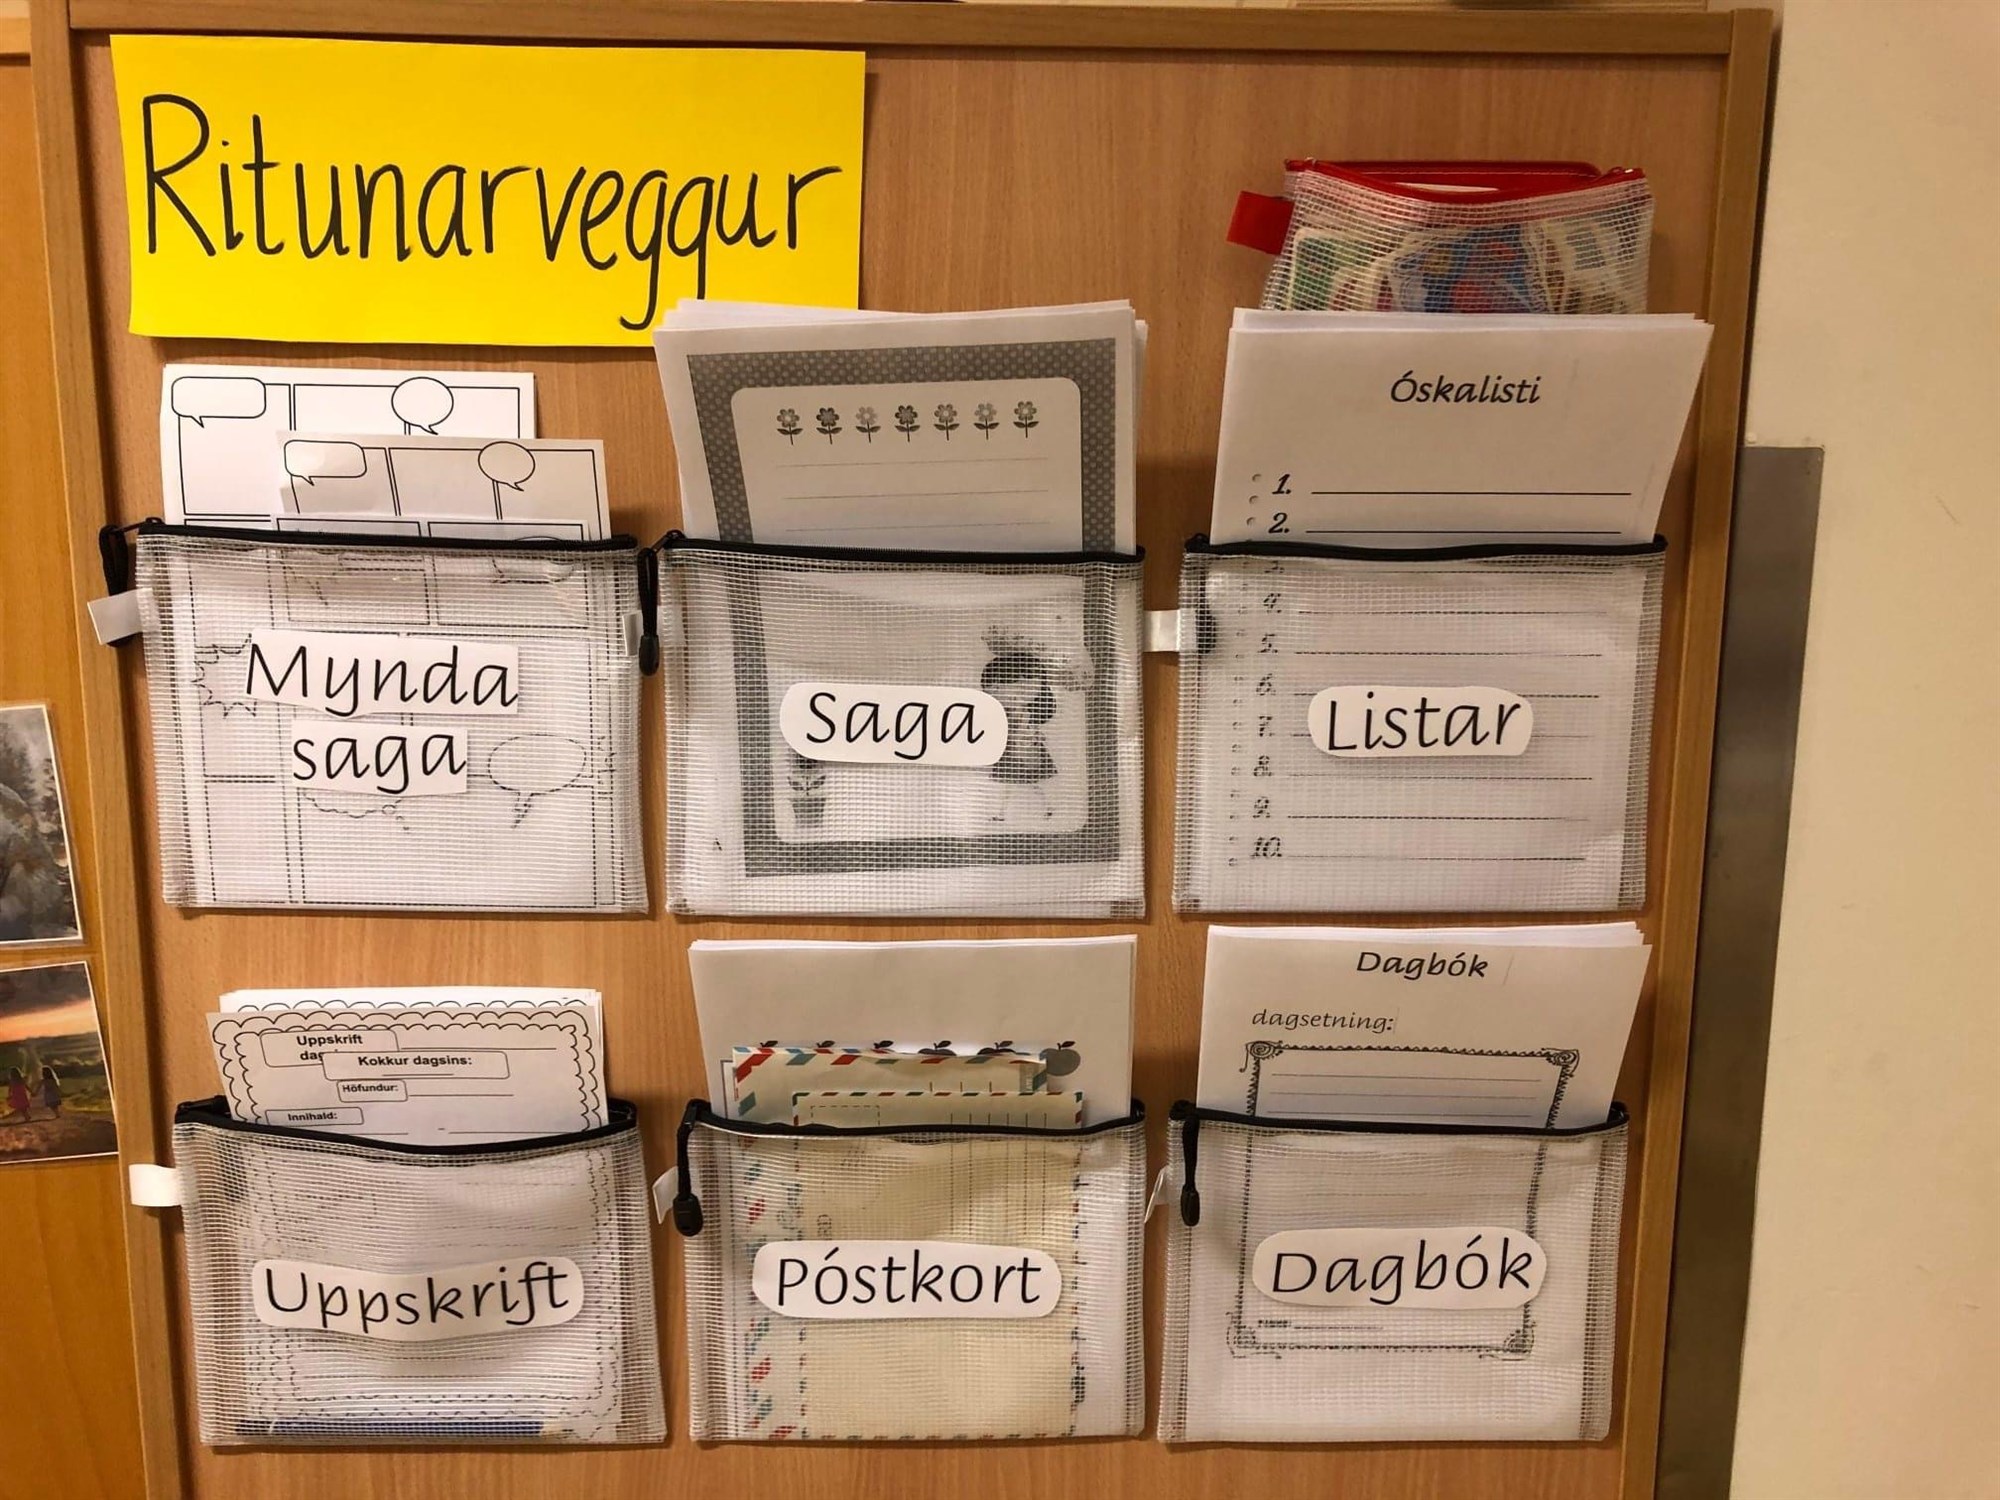 Ritunarveggur
Óskalisti
1.
2.
3.
4.
5.
6.
7.
8.
9.
10.
Mynda
saga
Saga
Listar
Uppskrift
Kokkur dagsins:
Höfundur:
Innihald:
Dagbók
dagsetning:
Uppskrift
Póstkort
Dagbók